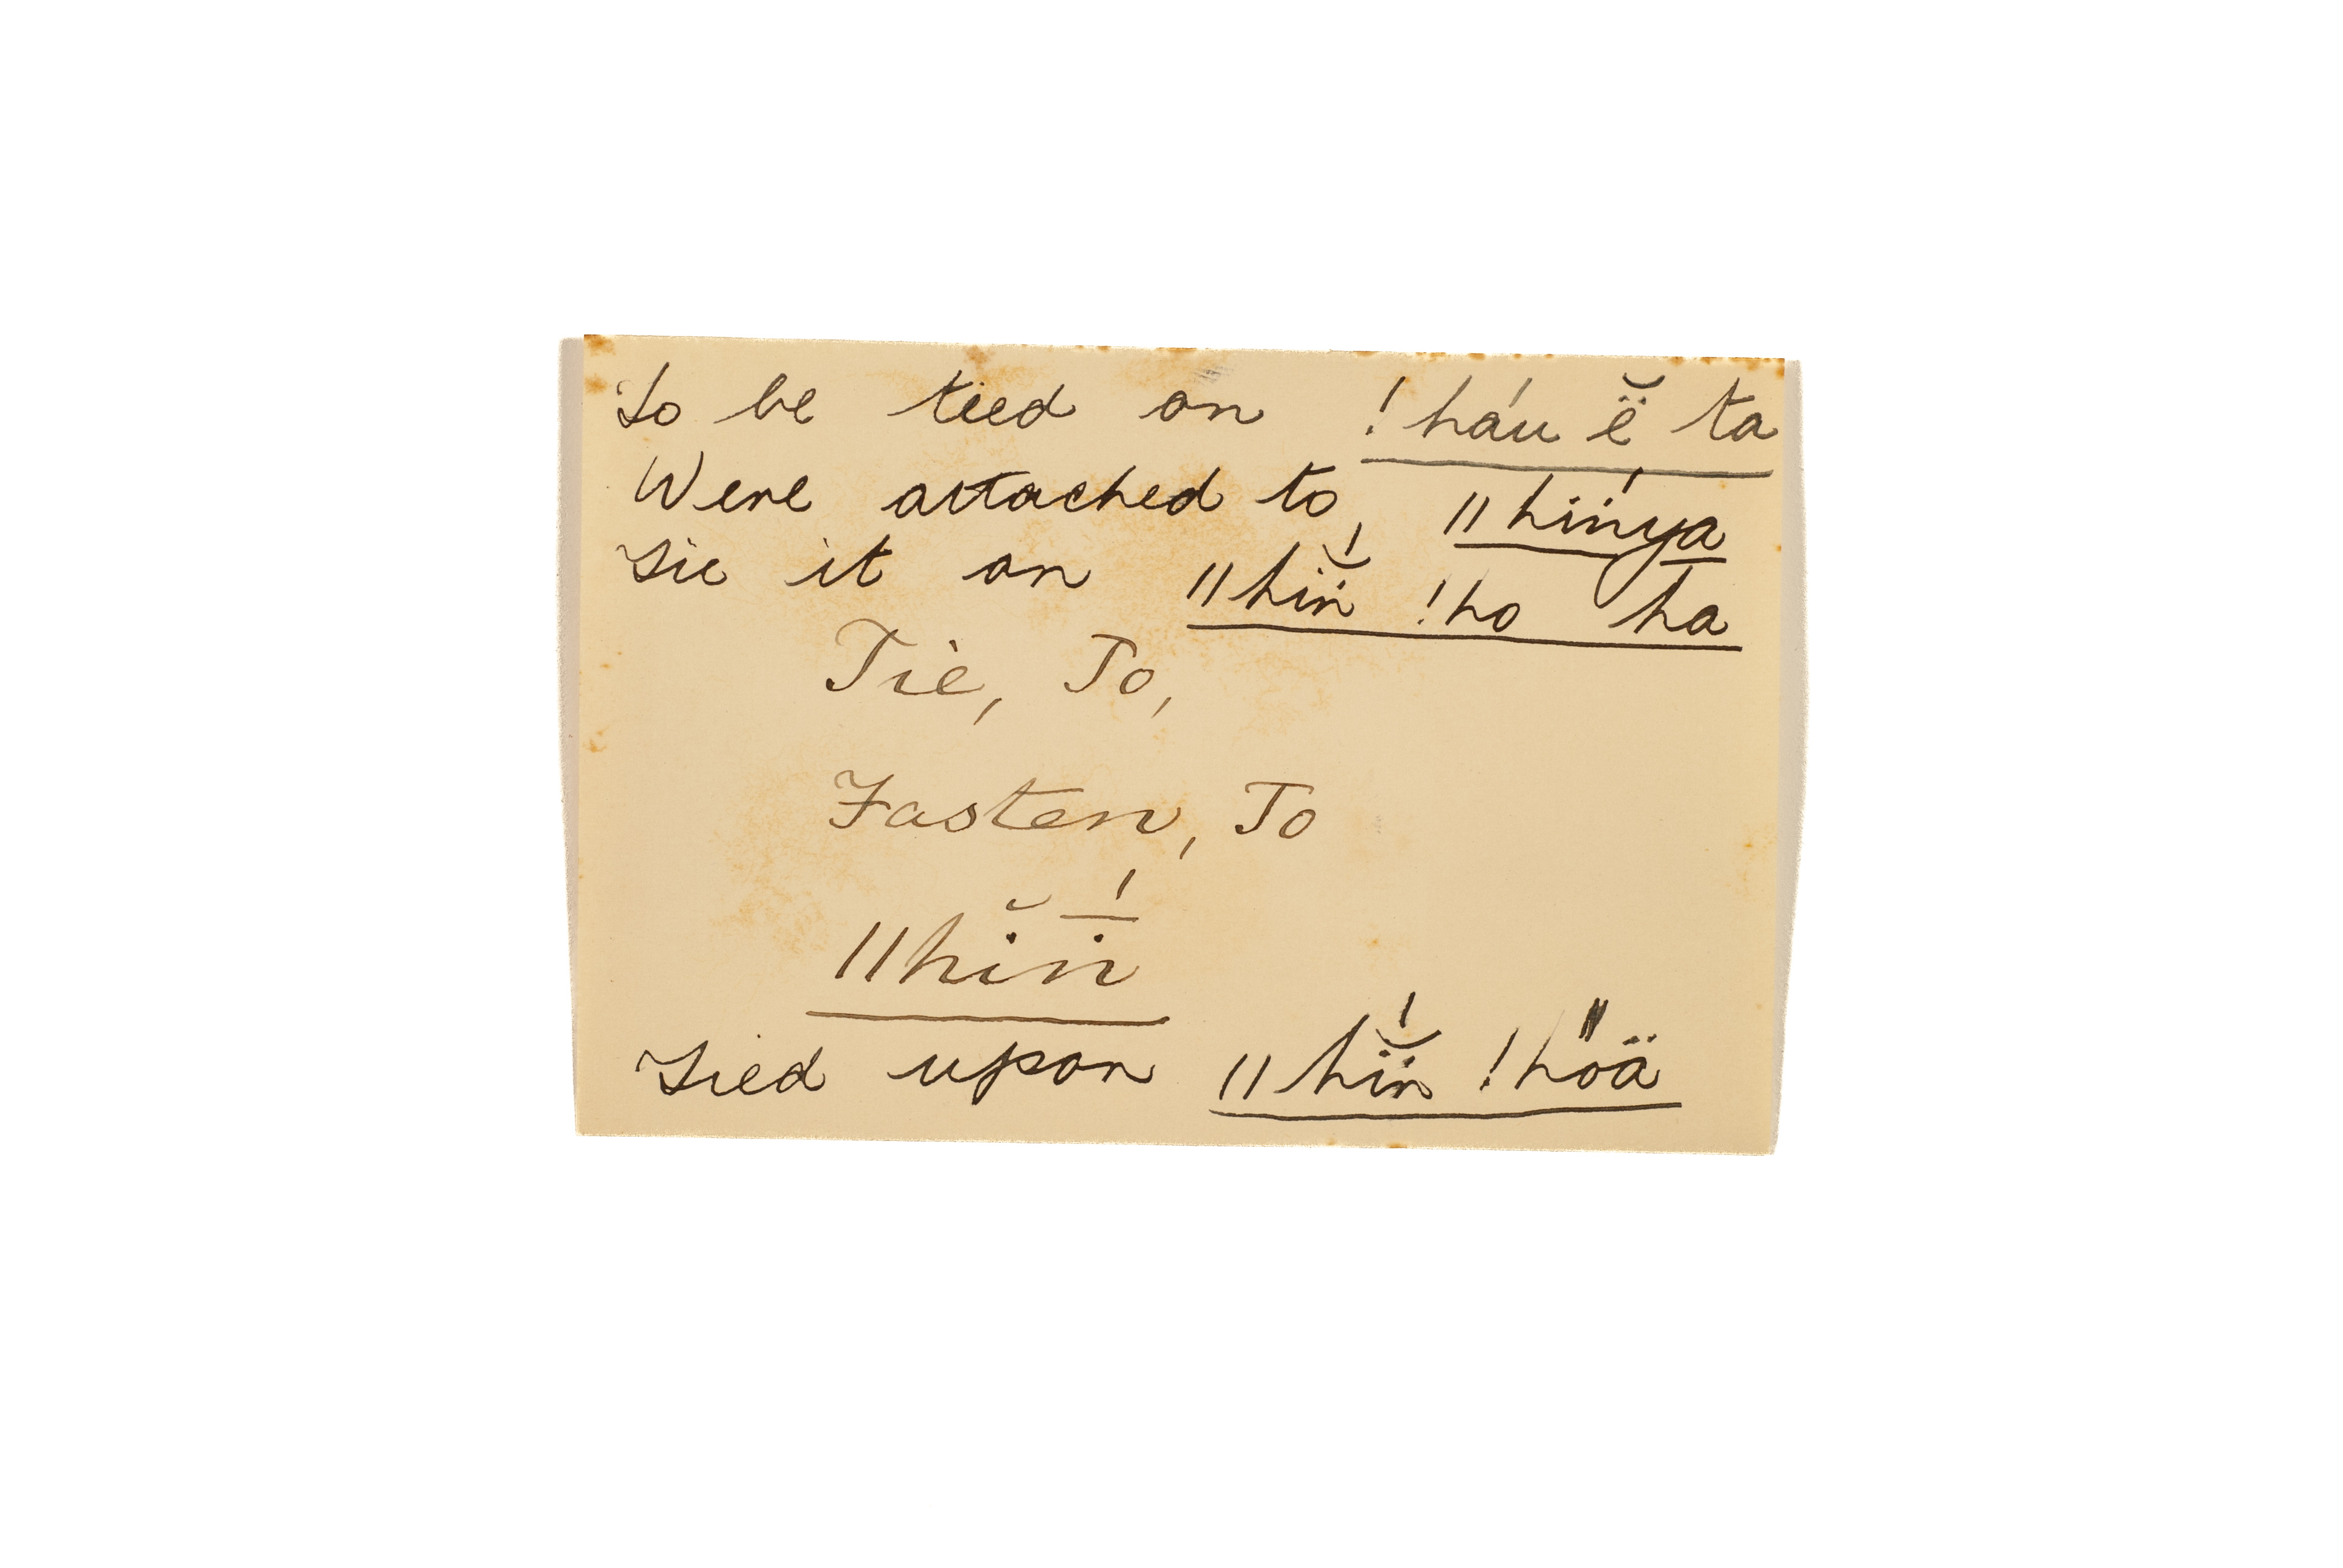 To be tied on !háu ë̆ ta
Were attached to, ǁhiṅ́ya
Tie it on ǁhĭṅ́ !ho ha
Tie, To,
Fasten, To
ǁhĭṉ̇́
Tied upon ǁhĭṅ́ !hőä